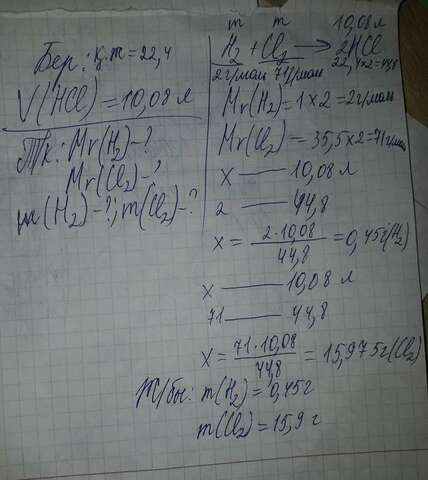 Бер: қ.т = 22,4
V(HCl) = 10,08 л
Тк: Mr(H₂)-?
Mr(Cl₂)-?
m(H₂)-?; m(Cl₂)-?
m m 10,08 л
H₂ + Cl₂ → 2HCl
2г/моль 71г/моль 22,4×2=44,8
Mr(H₂) = 1×2 = 2г/моль
Mr(Cl₂) = 35,5×2=71г/моль
x — 10,08 л
2 — 44,8
x = 2·10,08 / 44,8 = 0,45г(H₂)
x — 10,08 л
71 — 44,8
x = 71·10,08 / 44,8 = 15,975г(Cl₂)
Ж/бы: m(H₂) = 0,45г
m(Cl₂) = 15,9 г